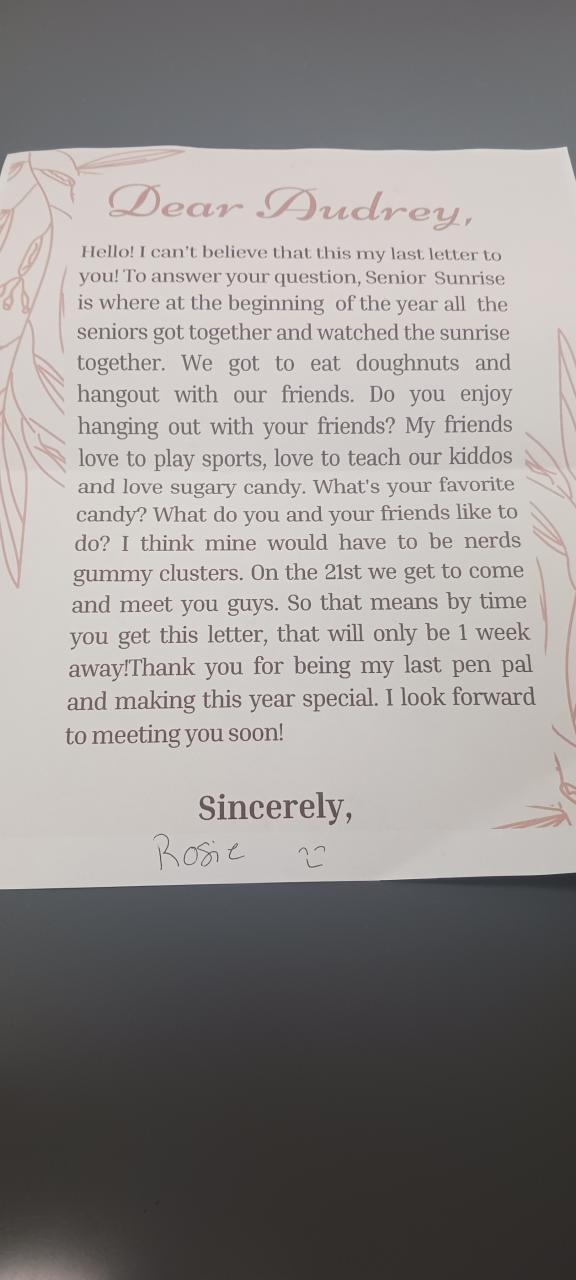 Dear Audrey,
Hello! I can't believe that this my last letter to
you! To answer your question, Senior Sunrise
is where at the beginning of the year all the
seniors got together and watched the sunrise
together. We got to eat doughnuts and
hangout with our friends. Do you enjoy
hanging out with your friends? My friends
love to play sports, love to teach our kiddos
and love sugary candy. What's your favorite
candy? What do you and your friends like to
do? I think mine would have to be nerds
gummy clusters. On the 21st we get to come
and meet you guys. So that means by time
you get this letter, that will only be 1 week
away!Thank you for being my last pen pal
and making this year special. I look forward
to meeting you soon!
Sincerely,
Rosie